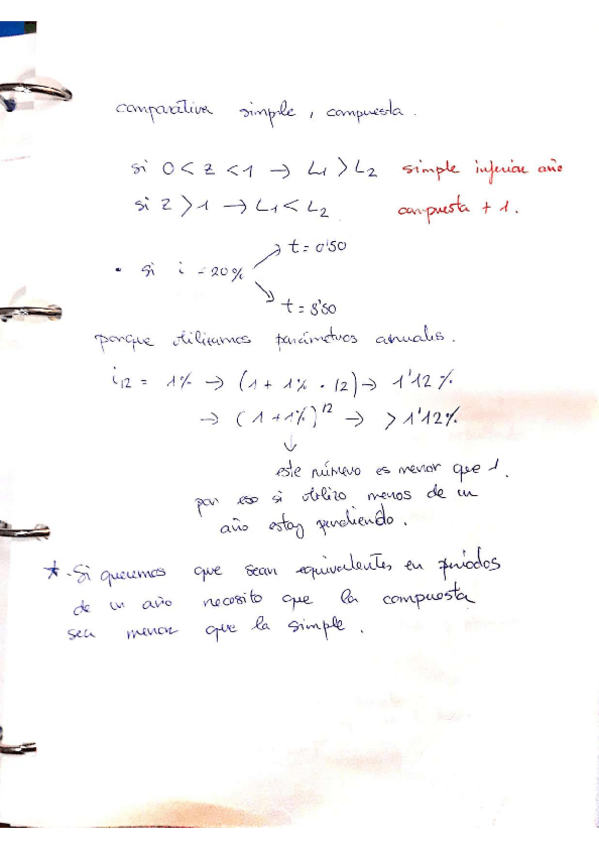 comparativa simple, compuesta.
si 0 < z < 1 → L1 > L2 simple inferior año
si z > 1 → L1 < L2 compuesta + 1.
• si i = 20% ↗ t = 0'50
↘ t = 3'50
porque utilizamos parámetros anuales.
i12 = 1% → (1 + 1% · 12) → 1'12%
→ (1 + 1%)^12 → > 1'12%
↓
este número es menor que 1.
por eso si utilizo menos de un
año estoy perdiendo.
* - Si queremos que sean equivalentes en periodos
de un año necesito que la compuesta
sea menor que la simple.